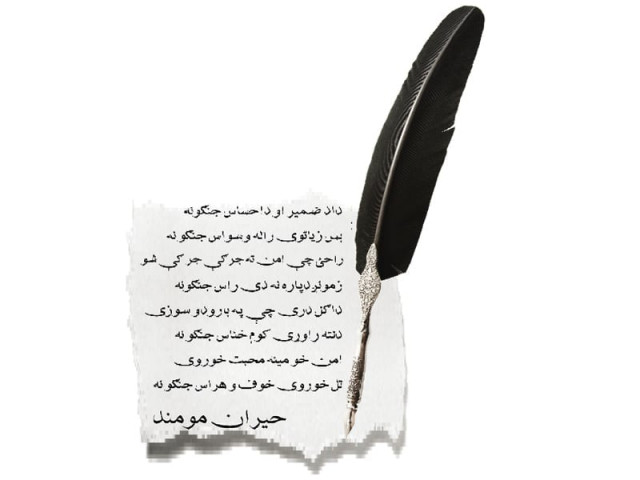 داد ضمیر او داحساس جنګونه
بس زیاتوی راته وسواس جنګونه
راځئ چې امن ته جرګې جرګې شو
زمونږدپاره نه دی راس جنګونه
داګل دری چې په بارودو سوزی
دلته راوړی کوم خناس جنګونه
امن خو مینه محبت خوروی
تل خوروی خوف و هراس جنګونه
حیران مومند